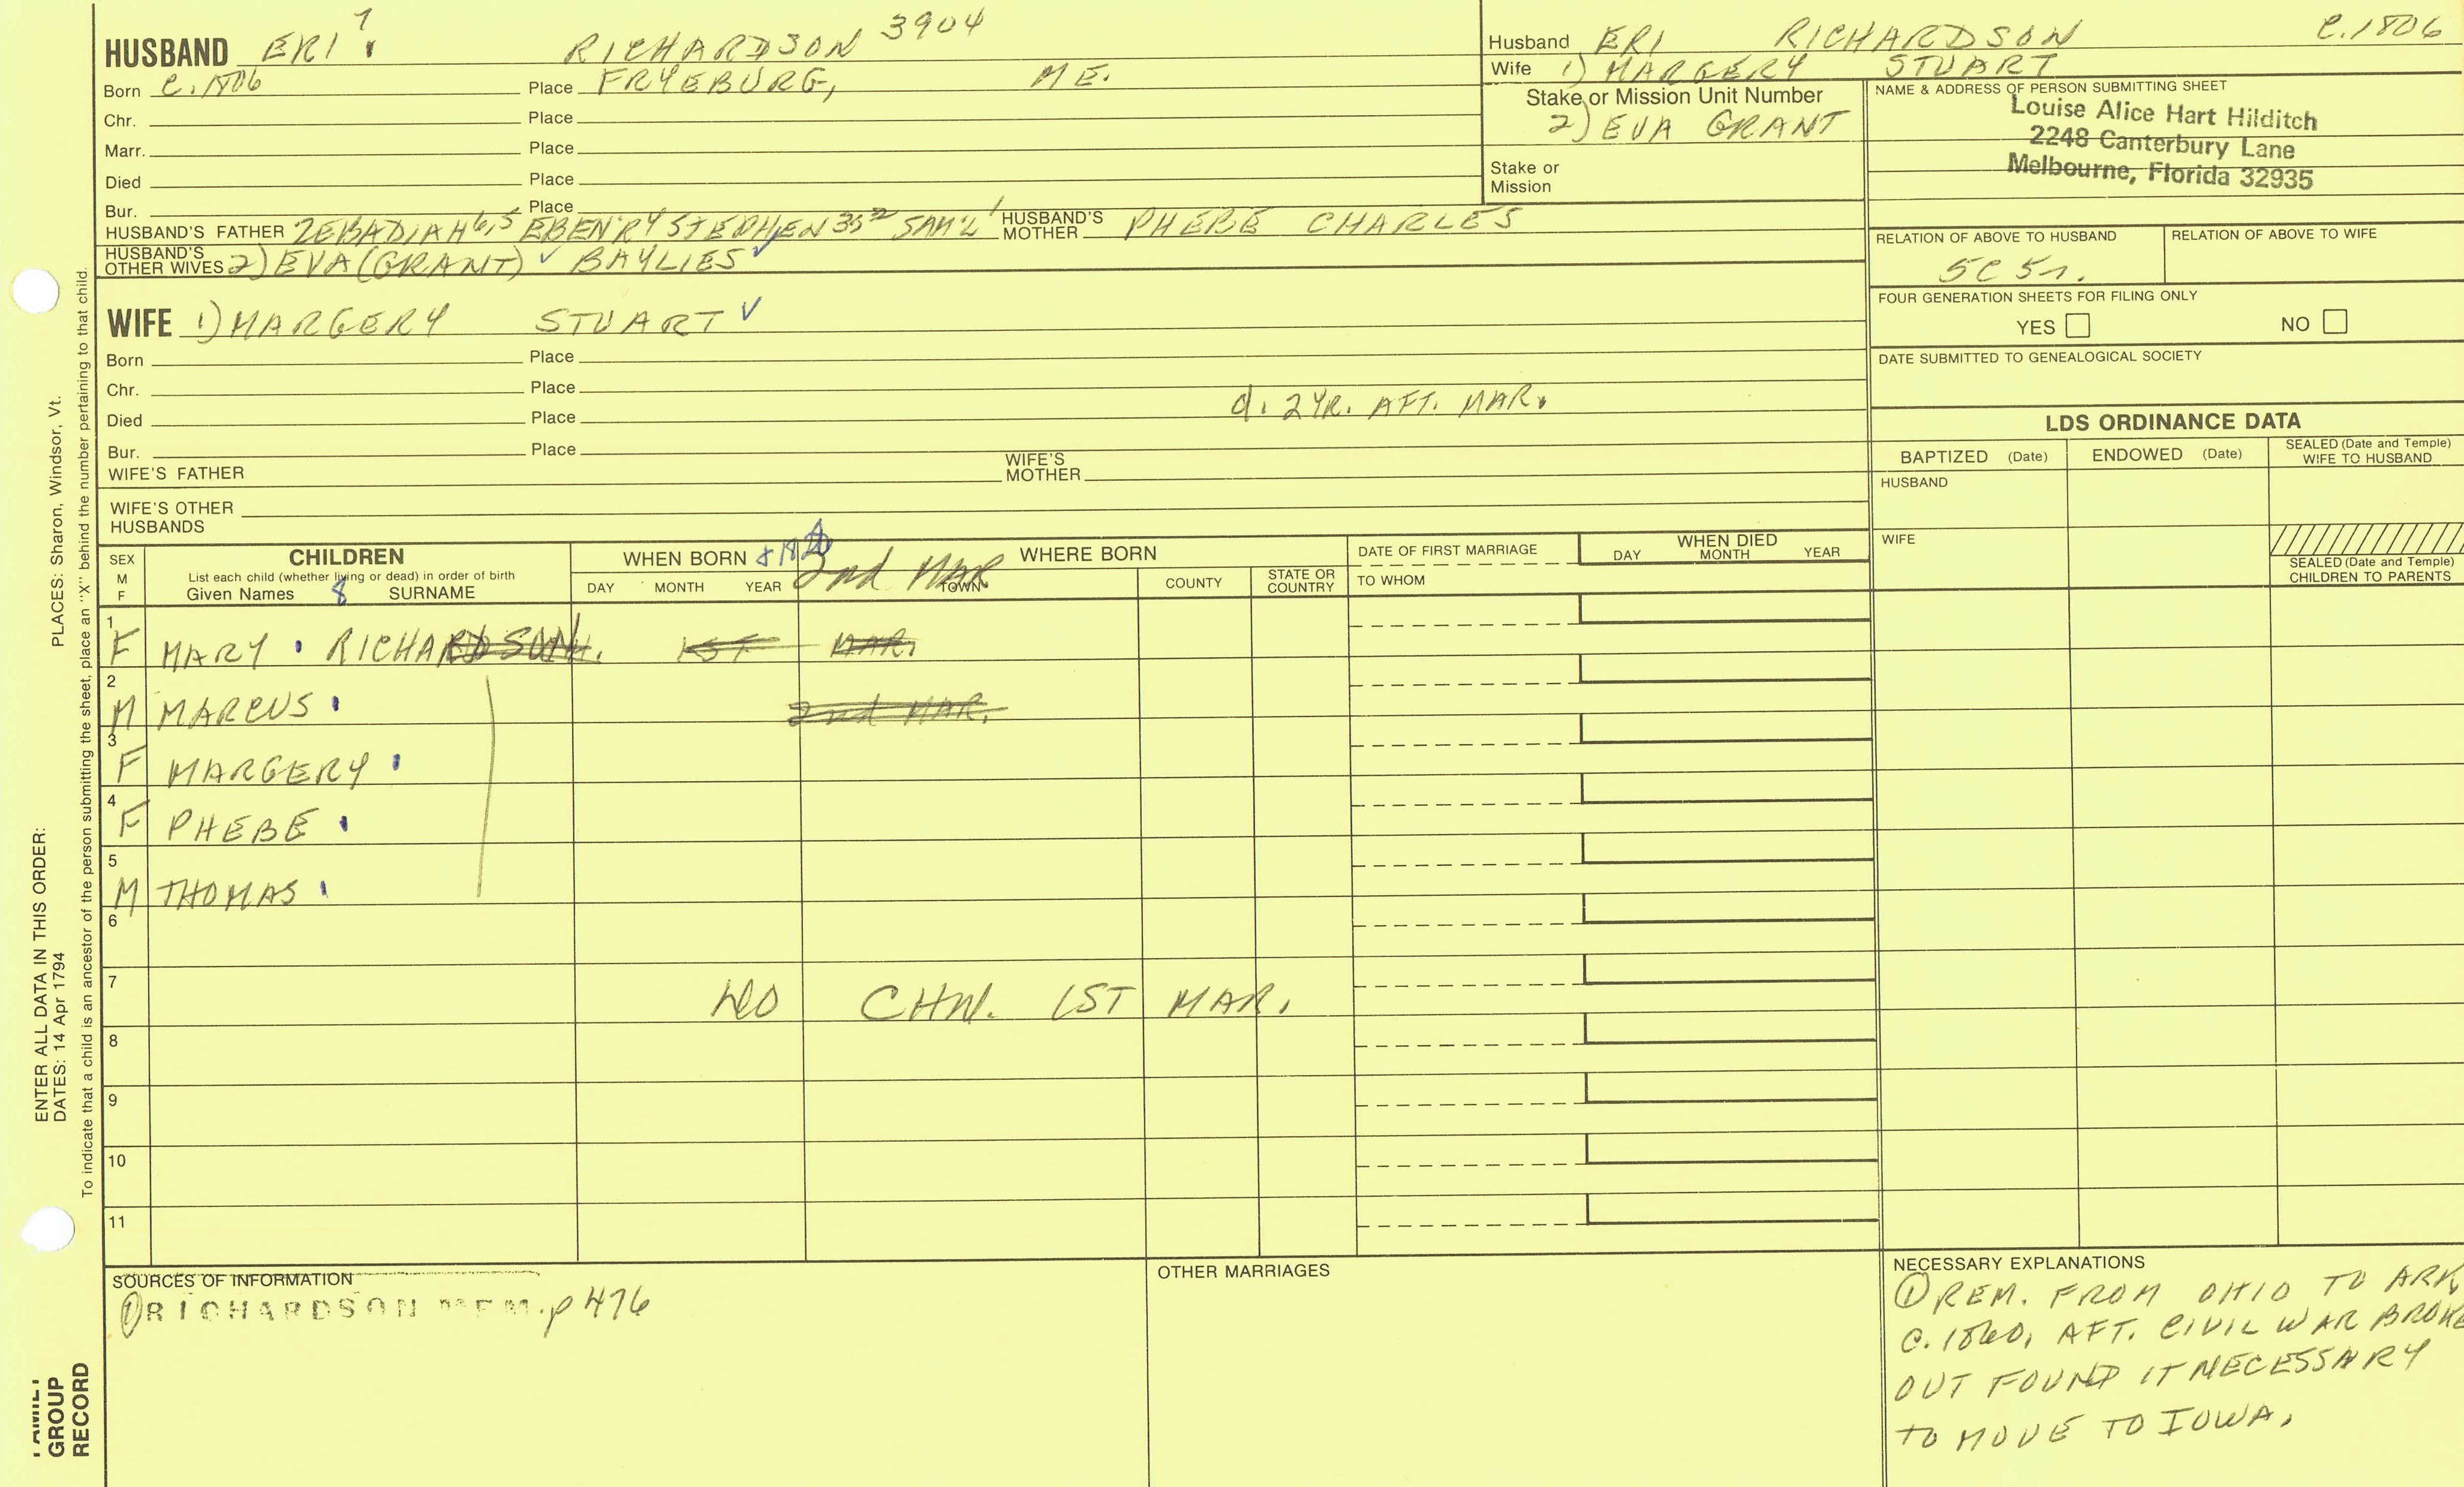 HUSBAND ERI 7 RICHARDSON 3904
Born C. 1806 Place FRYEBURG, ME.
Chr. Place
Marr. Place
Died Place
Bur. Place
HUSBAND'S FATHER ZEBADIAH 6,5 EBEN'R4 STEPHEN 3S2 SAM'L 1 HUSBAND'S MOTHER PHEBE CHARLES
HUSBAND'S OTHER WIVES 2) EVA (GRANT) ✓ BAYLIES ✓
Husband ERI RICHARDSON C. 1806
Wife 1) MARGERY STUART
Stake or Mission Unit Number
2) EVA GRANT
Stake or Mission
NAME & ADDRESS OF PERSON SUBMITTING SHEET
Louise Alice Hart Hilditch
2248 Canterbury Lane
Melbourne, Florida 32935
RELATION OF ABOVE TO HUSBAND RELATION OF ABOVE TO WIFE
5C 5r.
FOUR GENERATION SHEETS FOR FILING ONLY
YES NO
DATE SUBMITTED TO GENEALOGICAL SOCIETY
WIFE 1) MARGERY STUART ✓
Born Place
Chr. Place
d. 2 YR. AFT. MAR.
Died Place
Bur. Place
WIFE'S FATHER WIFE'S MOTHER
WIFE'S OTHER HUSBANDS
LDS ORDINANCE DATA
BAPTIZED (Date) ENDOWED (Date) SEALED (Date and Temple) WIFE TO HUSBAND
HUSBAND
WIFE
SEALED (Date and Temple) CHILDREN TO PARENTS
SEX M F
CHILDREN
List each child (whether living or dead) in order of birth
Given Names 8 SURNAME
WHEN BORN
DAY MONTH YEAR
2nd MAR
WHERE BORN
TOWN COUNTY STATE OR COUNTRY
DATE OF FIRST MARRIAGE
TO WHOM
WHEN DIED
DAY MONTH YEAR
1 F MARY RICHARDSON. 1ST MAR.
2 M MARCUS 2nd MAR.
3 F MARGERY
4 F PHEBE
5 M THOMAS
6
7 NO CHN. 1ST MAR.
8
9
10
11
SOURCES OF INFORMATION
① RICHARDSON MEM. p 476
OTHER MARRIAGES
NECESSARY EXPLANATIONS
① REM. FROM OHIO TO ARK
C. 1860, AFT. CIVIL WAR BROKE
OUT FOUND IT NECESSARY
TO MOVE TO IOWA.
PLACES: Sharon, Windsor, Vt.
ENTER ALL DATA IN THIS ORDER:
DATES: 14 Apr 1794
To indicate that a child is an ancestor of the person submitting the sheet, place an "X" behind the number pertaining to that child.
FAMILY
GROUP
RECORD